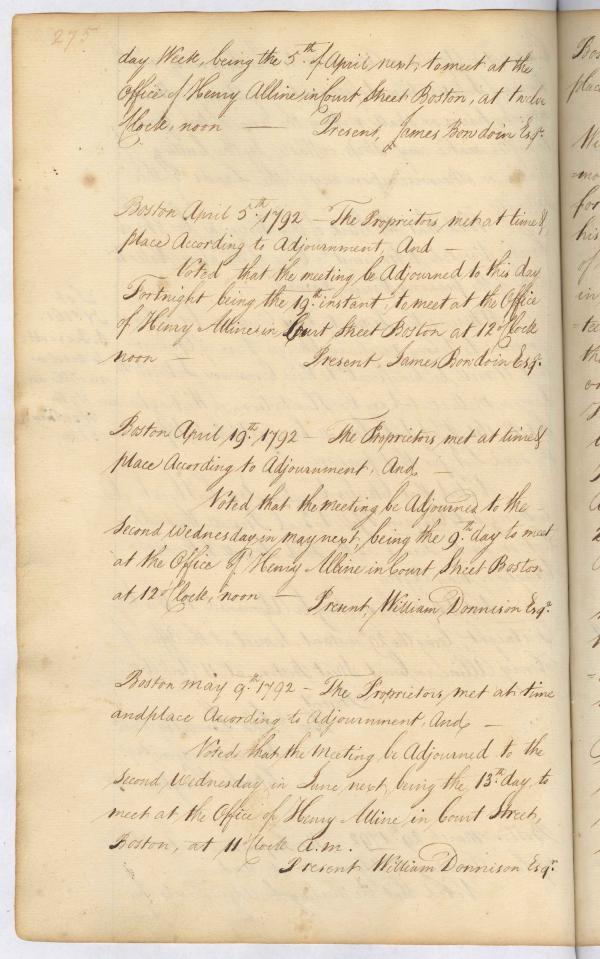 275
day Week, being the 5th. of April next, to meet at the
Office of Henry Alline in Court Street Boston, at twelve
Clock, noon — Present, James Bowdoin Esqr.
Boston April 5th. 1792 – The Proprietors, met at time &
place According to Adjournment, And –
Voted that the meeting be Adjourned to this day
Fortnight being the 19th. instant, to meet at the Office
of Henry Alline in Court Street Boston at 12 oClock
noon – Present, James Bowdoin Esqr.
Boston April 19th. 1792 – The Proprietors, met at time &
place According to Adjournment, And –
Voted, that the meeting be Adjourned to the
Second Wednesday in may next, being the 9th. day to meet
at the Office of Henry Alline in Court Street Boston
at 12 oClock, noon – Present, William Donnison Esqr.
Boston may 9th. 1792 – The Proprietors, met at time
and place According to Adjournment, And –
Voted that the Meeting be Adjourned to the
Second Wednesday in June next being the 13th. day, to
meet at the Office of Henry Alline in Court Street,
Boston, at 11 oClock A.m.
Present William Donnison Esqr.